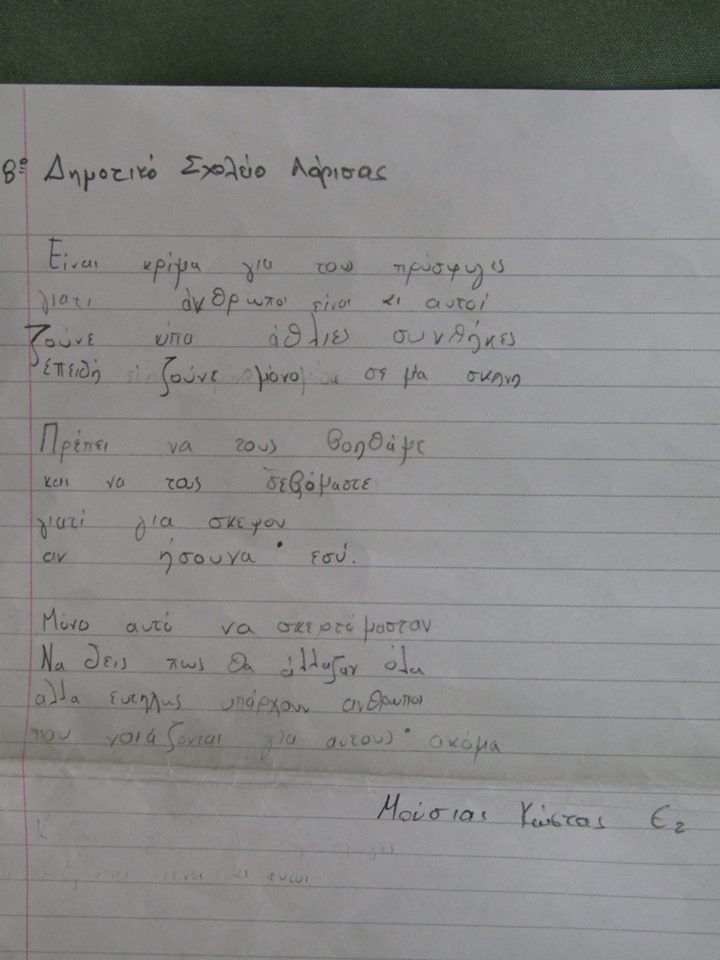 8ο Δημοτικό Σχολείο Λάρισας
Είναι κρίμα για τους πρόσφυγες
γιατι άνθρωποι είναι κι αυτοί
Ζούνε ύπο άθλιες συνθήκες
επειδή ζούνε μόνο σε μα σκηνη
Πρέπει να τους βοηθάμε
και να τους σεβόμαστε
γιατί για σκεψου
αν ήσουνα εσύ.
Μόνο αυτό να σκεφτόμασταν
Να δεις πως θα άλλαζαν όλα
αλλα ευτηχης υπάρχουν ανθρωποι
που νοιάζονται για αυτους ακόμα
Μούσιας Κώστας Ε2
είναι κι αυτοι